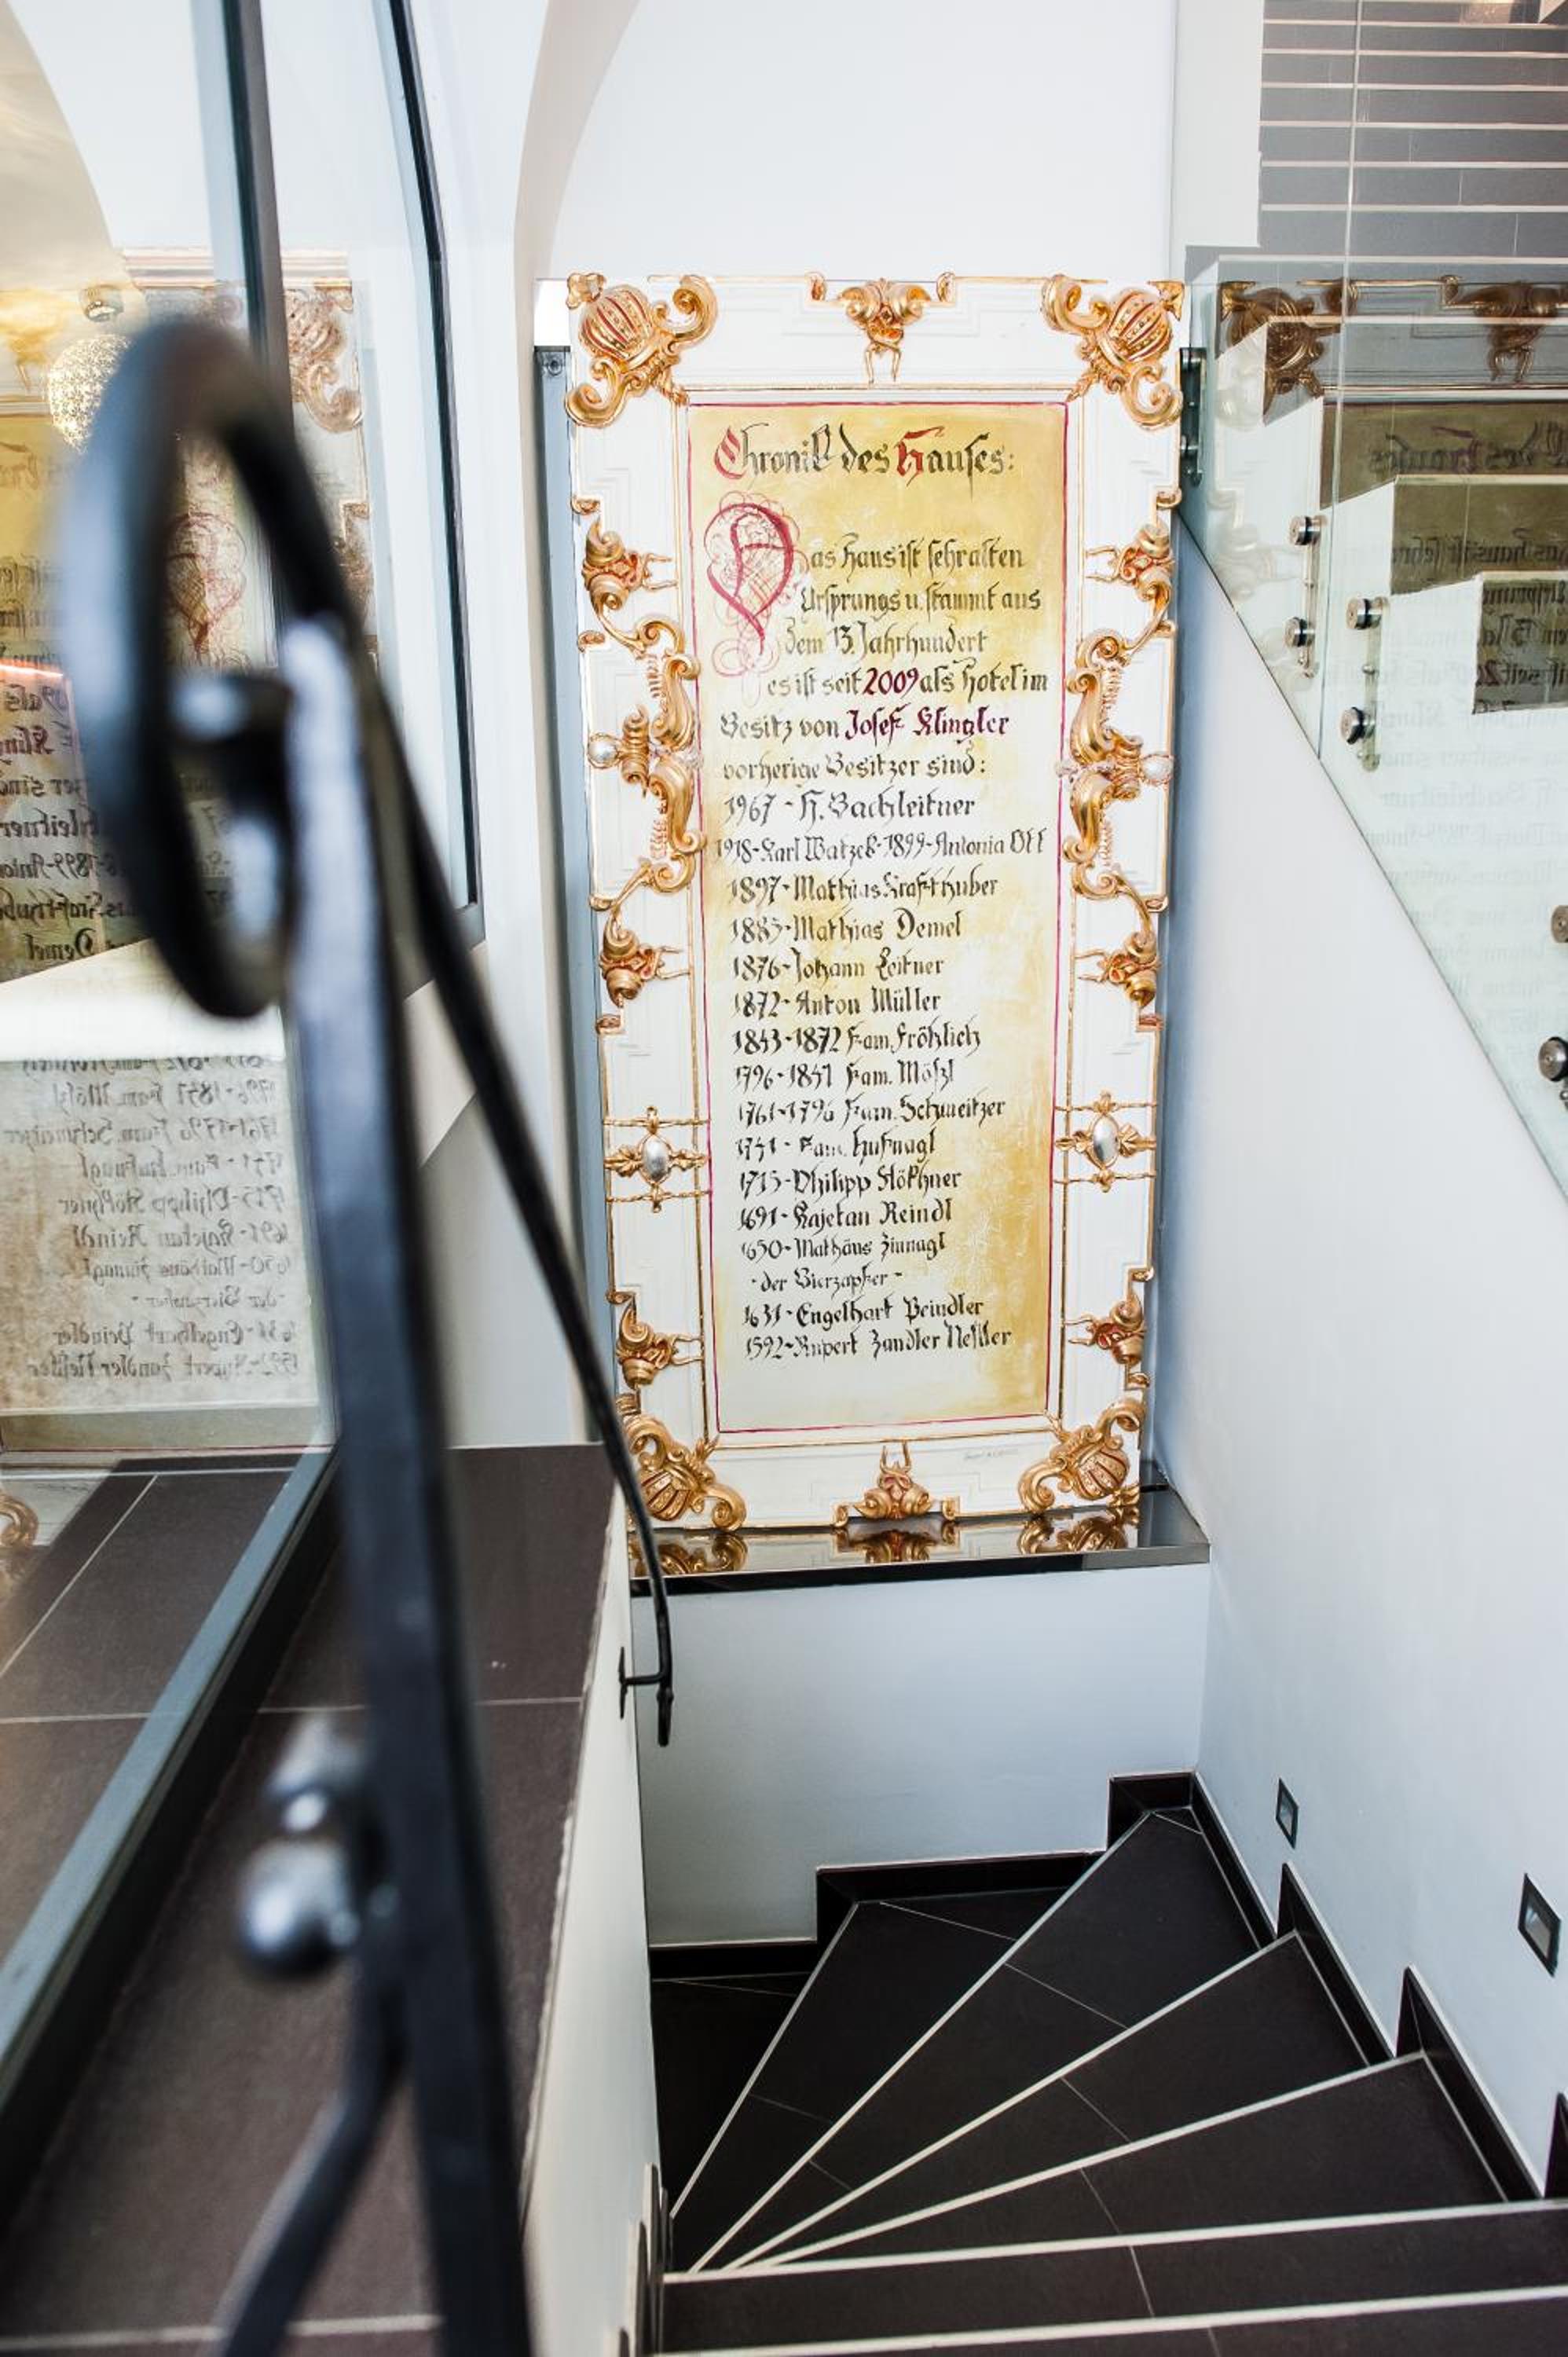 Chronik des Hauses:
Das Haus ist sehr alten
Ursprungs u. stammt aus
dem 13. Jahrhundert
es ist seit 2009 als Hotel im
Besitz von Josef Klingler
vorherige Besitzer sind:
1967 - H. Bachleitner
1918-Karl Watzek-1899-Antonia Ott
1897-Mathias Krafthuber
1885-Mathias Demel
1876-Johann Leitner
1872-Anton Müller
1843-1872 Fam. Fröhlich
1796-1841 Fam. Möszl
1761-1796 Fam. Schweitzer
1741 - Fam. Hufnagl
1715-Philipp Stökhner
1691-Kajetan Reindl
1650-Mathäus Zinnagl
-der Bierzapfer-
1631-Engelhart Peindler
1592-Rupert Zandler Neßtler